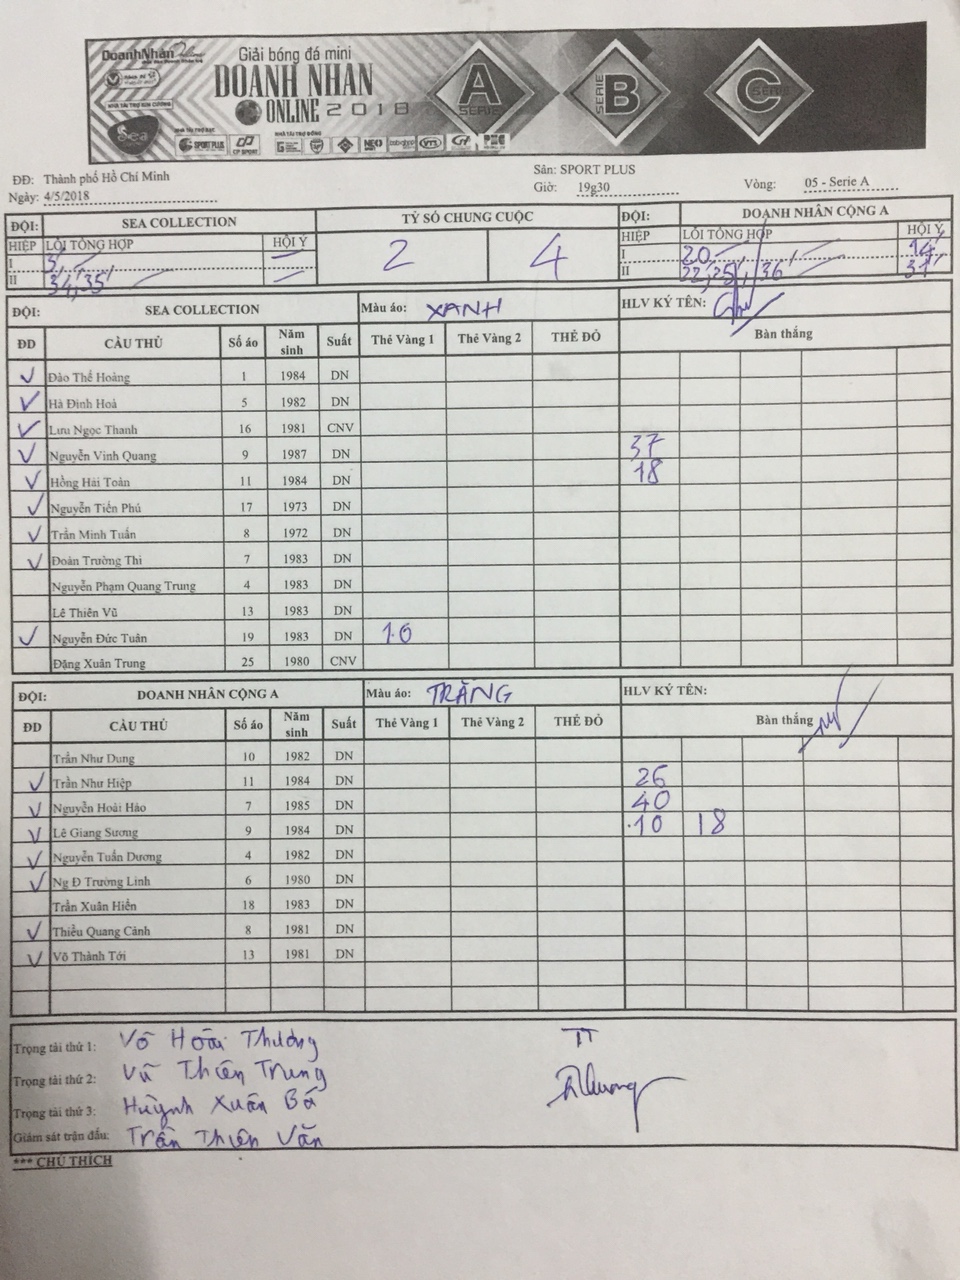 DoanhNhân Online
Giải bóng đá mini
DOANH NHÂN
ONLINE 2018
A SERIE
SERIE B
C SERIE
NHÀ TÀI TRỢ KIM CƯƠNG
Sea
NHÀ TÀI TRỢ BẠC
NHÀ TÀI TRỢ ĐỒNG
SPORT PLUS
CP SPORT
NEO
VTL
ĐĐ: Thành phố Hồ Chí Minh
Sân: SPORT PLUS
Ngày: 4/5/2018
Giờ: 19g30
Vòng: 05 - Serie A
ĐỘI: SEA COLLECTION
TỶ SỐ CHUNG CUỘC
ĐỘI: DOANH NHÂN CỘNG A
HIỆP LỖI TỔNG HỢP HỘI Ý
2 4
HIỆP LỖI TỔNG HỢP HỘI Ý
I 3'
I 20 14'
II 34', 35'
II 22, 25', 36' 31'
ĐỘI: SEA COLLECTION Màu áo: XANH HLV KÝ TÊN:
ĐD CẦU THỦ Số áo Năm sinh Suất Thẻ Vàng 1 Thẻ Vàng 2 THẺ ĐỎ Bàn thắng
✓ Đào Thế Hoàng 1 1984 DN
✓ Hà Đình Hoà 5 1982 DN
✓ Lưu Ngọc Thanh 16 1981 CNV
✓ Nguyễn Vinh Quang 9 1987 DN 37
✓ Hồng Hải Toàn 11 1984 DN 18
✓ Nguyễn Tiến Phú 17 1973 DN
✓ Trần Minh Tuấn 8 1972 DN
✓ Đoàn Trường Thi 7 1983 DN
Nguyễn Phạm Quang Trung 4 1983 DN
Lê Thiên Vũ 13 1983 DN
✓ Nguyễn Đức Tuân 19 1983 DN 10
Đặng Xuân Trung 25 1980 CNV
ĐỘI: DOANH NHÂN CỘNG A Màu áo: TRẮNG HLV KÝ TÊN:
ĐD CẦU THỦ Số áo Năm sinh Suất Thẻ Vàng 1 Thẻ Vàng 2 THẺ ĐỎ Bàn thắng
Trần Như Dung 10 1982 DN
✓ Trần Như Hiệp 11 1984 DN 26
✓ Nguyễn Hoài Hảo 7 1985 DN 40
✓ Lê Giang Sương 9 1984 DN 10 18
✓ Nguyễn Tuấn Dương 4 1982 DN
✓ Ng Đ Trường Linh 6 1980 DN
Trần Xuân Hiền 18 1983 DN
✓ Thiều Quang Cảnh 8 1981 DN
✓ Võ Thành Tới 13 1981 DN
Trọng tài thứ 1: Võ Hoài Thương TT
Trọng tài thứ 2: Vũ Thiên Trung
Trọng tài thứ 3: Huỳnh Xuân Bá
Giám sát trận đấu: Trần Thiên Văn
*** CHÚ THÍCH